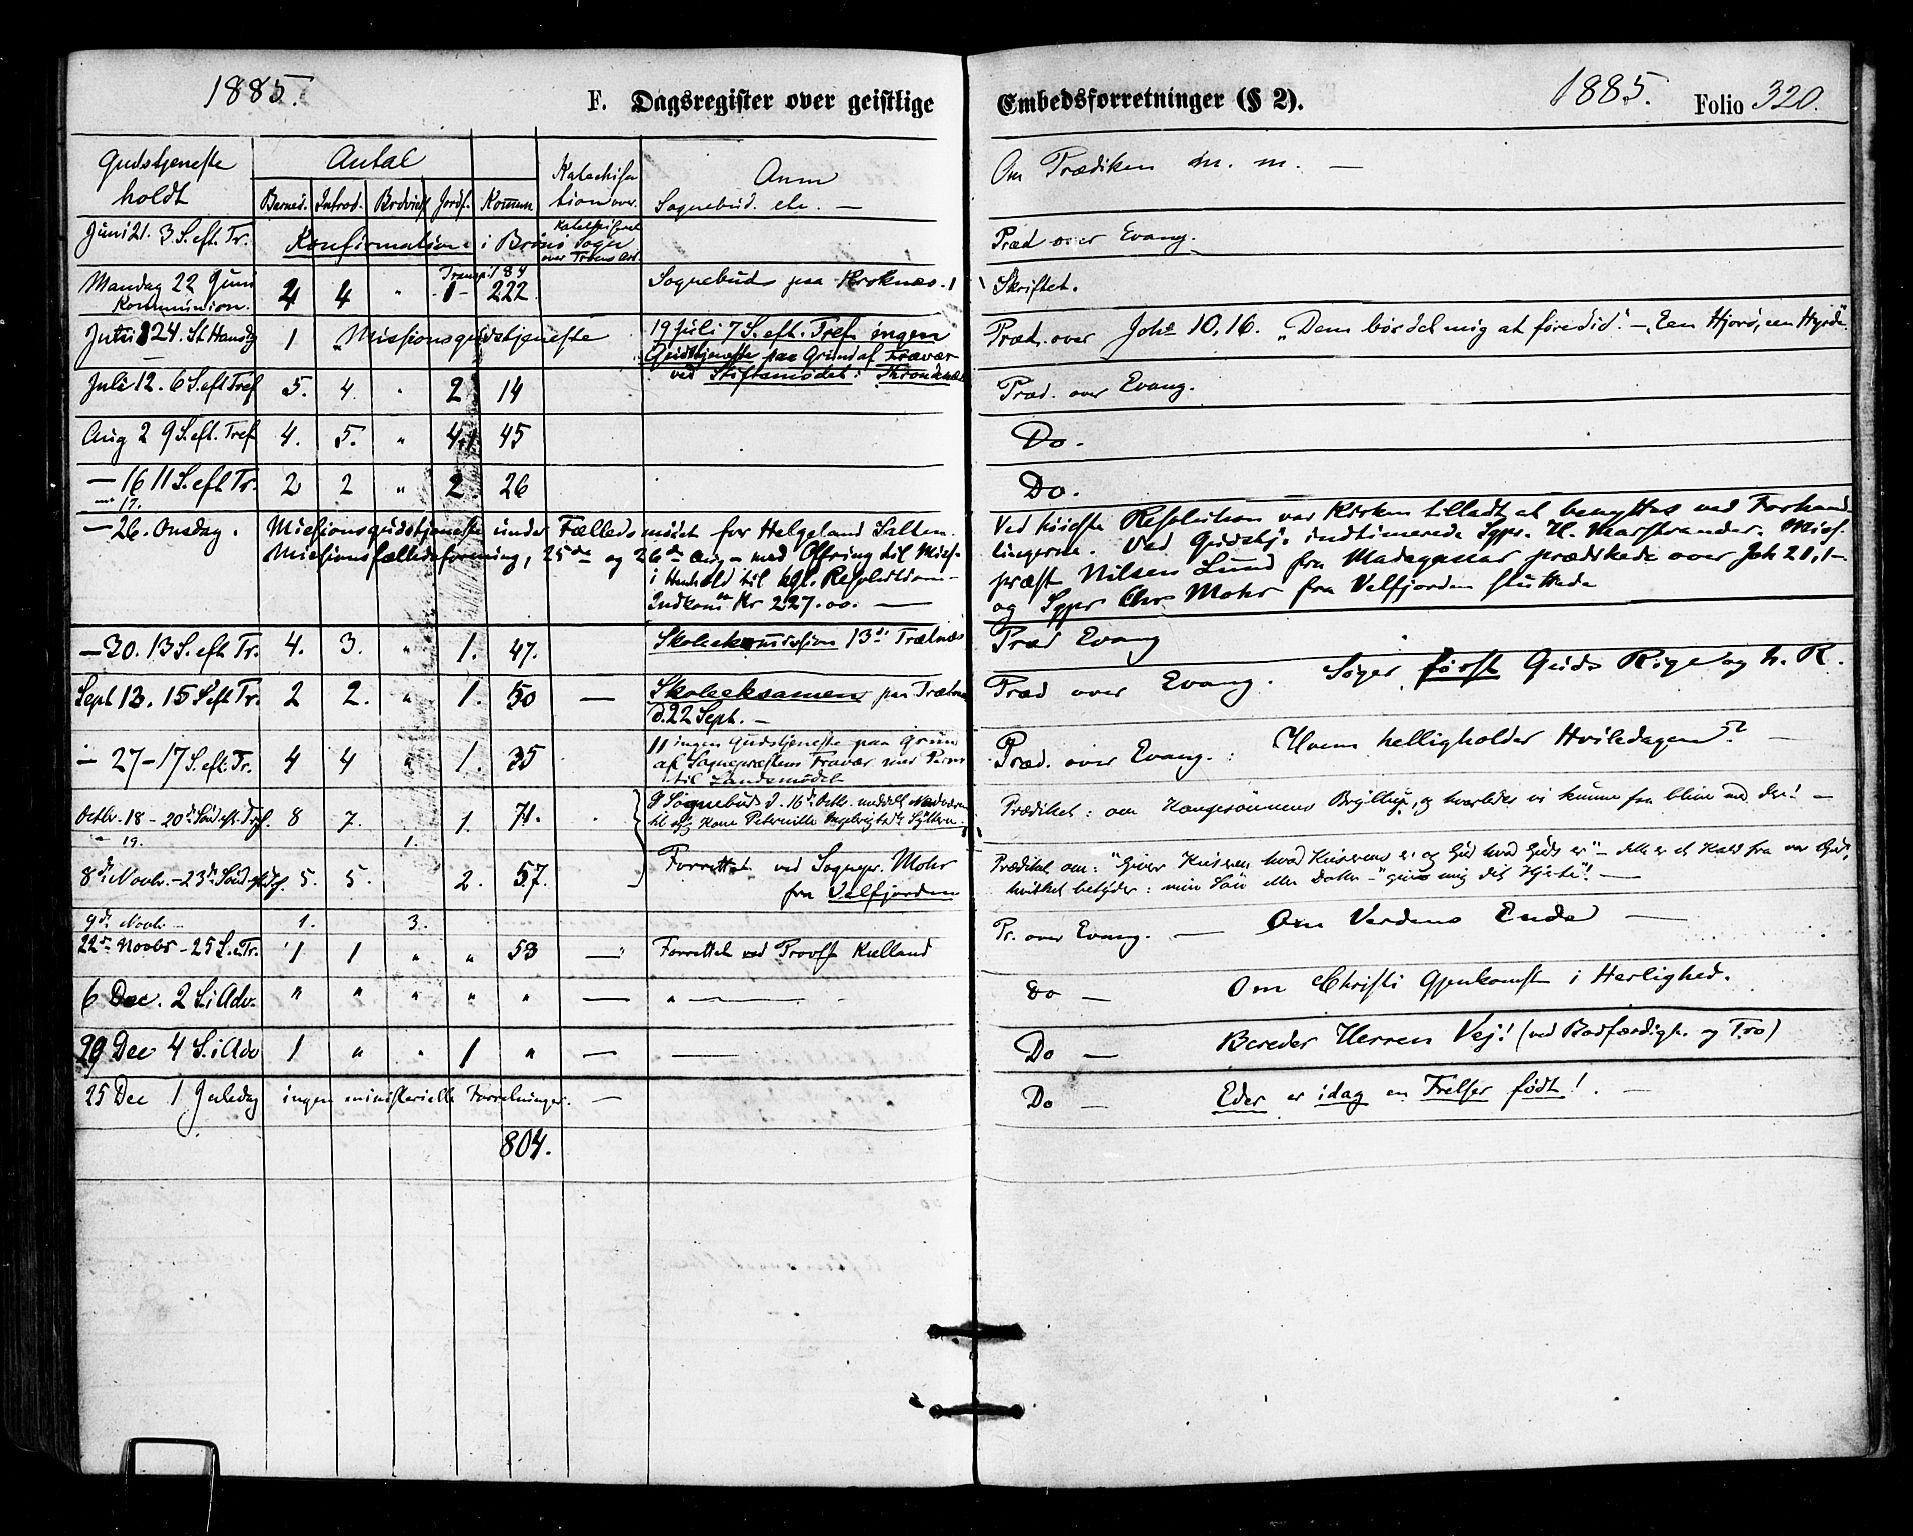 1885.
F. Dagsregister over geistlige
Embedsforretninger (§ 2).
1885.
Folio 320.
Gudstjeneste holdt
Antal
Barned. Introd. Brdvielse Jordf. Kommun
Katechisa tion over.
Anm
Sognebud. etc. —
Om Prædiken m. m. —
Juni 21. 3 S. eft. Tr. Konfirmation i Brønø Sogn
Præd over Evang.
Transp: 184
Mandag 22 Juni Kommunion. 4 4 " 1 222 Sognebud paa Kroknæs. 1
Skriftet.
24. St Hansdg 1 Missionsgudstjeneste
19 Juli 7 S. eft. Tref. ingen
Gudstjeneste paa Grund af Fravær
ved Stiftsmødet i Throndenæs
Præd. over Joh. 10, 16. "Dem bør det mig at føre did." — "Een Hjord, een Hyrde"
Juli 12. 6 S. eft Tref 5. 4. " 2 14
Præd. over Evang.
Aug 2 9 S. eft. Tref 4. 5. " 4.1 45
Do.
— 16 11 S. eft Tr. 2 2 " 2. 26
17.
Do.
— 26. Onsdag. Missionsgudstjeneste under Fællesmødet for Helgeland Salten.
Missionsfællesforening, 25de og 26de Aug — med Offring til Miss.
i Henhold til kgl. Resolution —
Indkom Kr 227.00. —
Ved høieste Resolution var Kirken tilladt at benyttes ved Forhand
lingerne. Ved Gudstj. indtimerede Sgpr. H. Marstrander. Miss.
præst Nilsen Lund fra Madagascar prædikede over Joh 21, 1—
og Sgpr Chr Mohr fra Velfjorden sluttede
— 30. 13 S. eft Tr. 4. 3. " 1. 47. Skolekommission 13de Trælnæs
Præd Evang
Sept 13. 15 S eft Tr. 2 2. " 1. 50 — Skoleeksamen paa Trælnæs
d. 22 Sept. —
Præd over Evang. Søger først Guds Rige og h. R.
— 27 — 17 S. eft. Tr. 4 4 " 1. 35
11 ingen Gudstjeneste paa Grund
af Sognepræstens Fravær
til Landsmødet
Præd. over Evang.: Hvem helligholder Hviledagen? —
Octbr. 18 — 20de Sönd eft. Tref. 8 7. 1. 71.
Sognebud d. 16de Octbr. meddelt Nadveren
til syg Kone Peternille
" 19. 1.
Prædiket: om Kongesønnens Bryllup, og hvorledes vi kunne faa blive med der! —
8de Novbr. — 23de Sönd. eft Tref. 5. 5. 2. 57.
Forrettet ved Sognepr. Mohr
fra Velfjorden
Prædiket om: "Giver Keiseren hvad Keiserens er, og Gud hvad Guds er" — det er et Kald fra vor Gud,
hvilket betyder: min Søn eller Datter — "giv mig dit Hjerte"! —
9de Novbr. — 1. 3.
22de Novbr — 25 S. e Tr. 1 1 " " 53 — Forrettet ved Provst Kielland
Pr. over Evang. — Om Verdens Ende —
6 Dec. 2 S. i Adv. " " " " " — " —
Do — Om Christi Gjenkomst i Herlighed.
20 Dec 4 S. i Adv 1 " " 1 " — —
Do — Bereder Herren Vej! (ved Bodfærdigh. og Tro)
25 Dec 1 Juledag ingen ministerielle Forretninger. —
Do — Eder er idag en Frelser født! —
804.